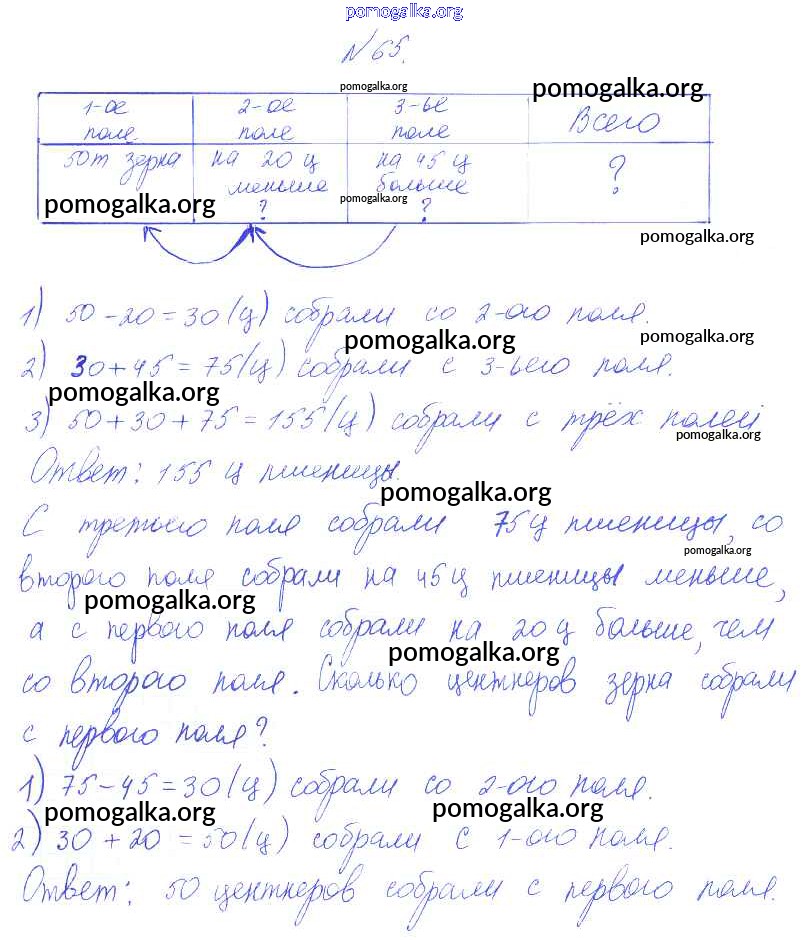 pomogalka.org
№ 65.
pomogalka.org
pomogalka.org
1-ое поле
2-ое поле
3-ье поле
Всего
50т зерна
на 20 ц меньше ?
на 45 ц больше ?
?
pomogalka.org
pomogalka.org
pomogalka.org
1) 50 - 20 = 30 (ц) собрали со 2-ого поля.
pomogalka.org
pomogalka.org
2) 30 + 45 = 75 (ц) собрали с 3-ьего поля.
pomogalka.org
3) 50 + 30 + 75 = 155 (ц) собрали с трёх полей
pomogalka.org
Ответ: 155 ц пшеницы.
pomogalka.org
С третьего поля собрали 75 ц пшеницы, со
pomogalka.org
второго поля собрали на 45 ц пшеницы меньше,
pomogalka.org
а с первого поля собрали на 20 ц больше, чем
pomogalka.org
со второго поля. Сколько центнеров зерна собрали
с первого поля?
1) 75 - 45 = 30 (ц) собрали со 2-ого поля.
pomogalka.org
pomogalka.org
2) 30 + 20 = 50 (ц) собрали с 1-ого поля.
Ответ: 50 центнеров собрали с первого поля.